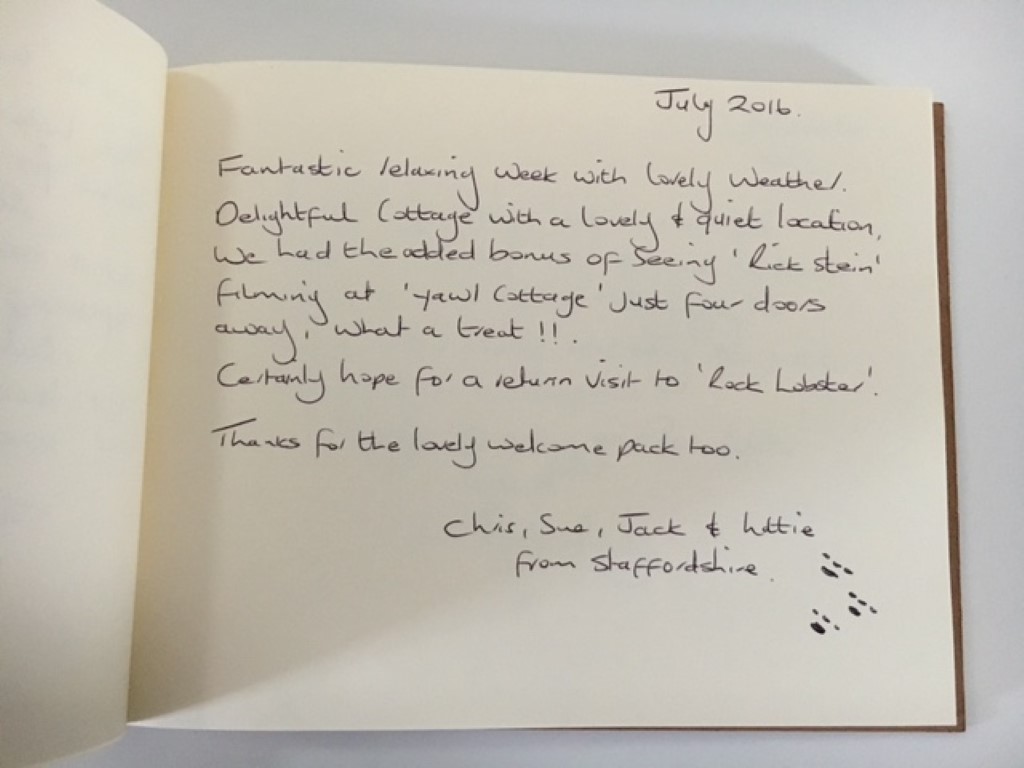 July 2016.
Fantastic relaxing week with lovely weather.
Delightful Cottage with a lovely & quiet location,
We had the added bonus of seeing 'Rick Stein'
filming at 'Yawl Cottage' Just four doors
away, what a treat!!.
Certainly hope for a return visit to 'Rock Lobster'.
Thanks for the lovely welcome pack too.
Chris, Sue, Jack & Lottie
from Staffordshire.